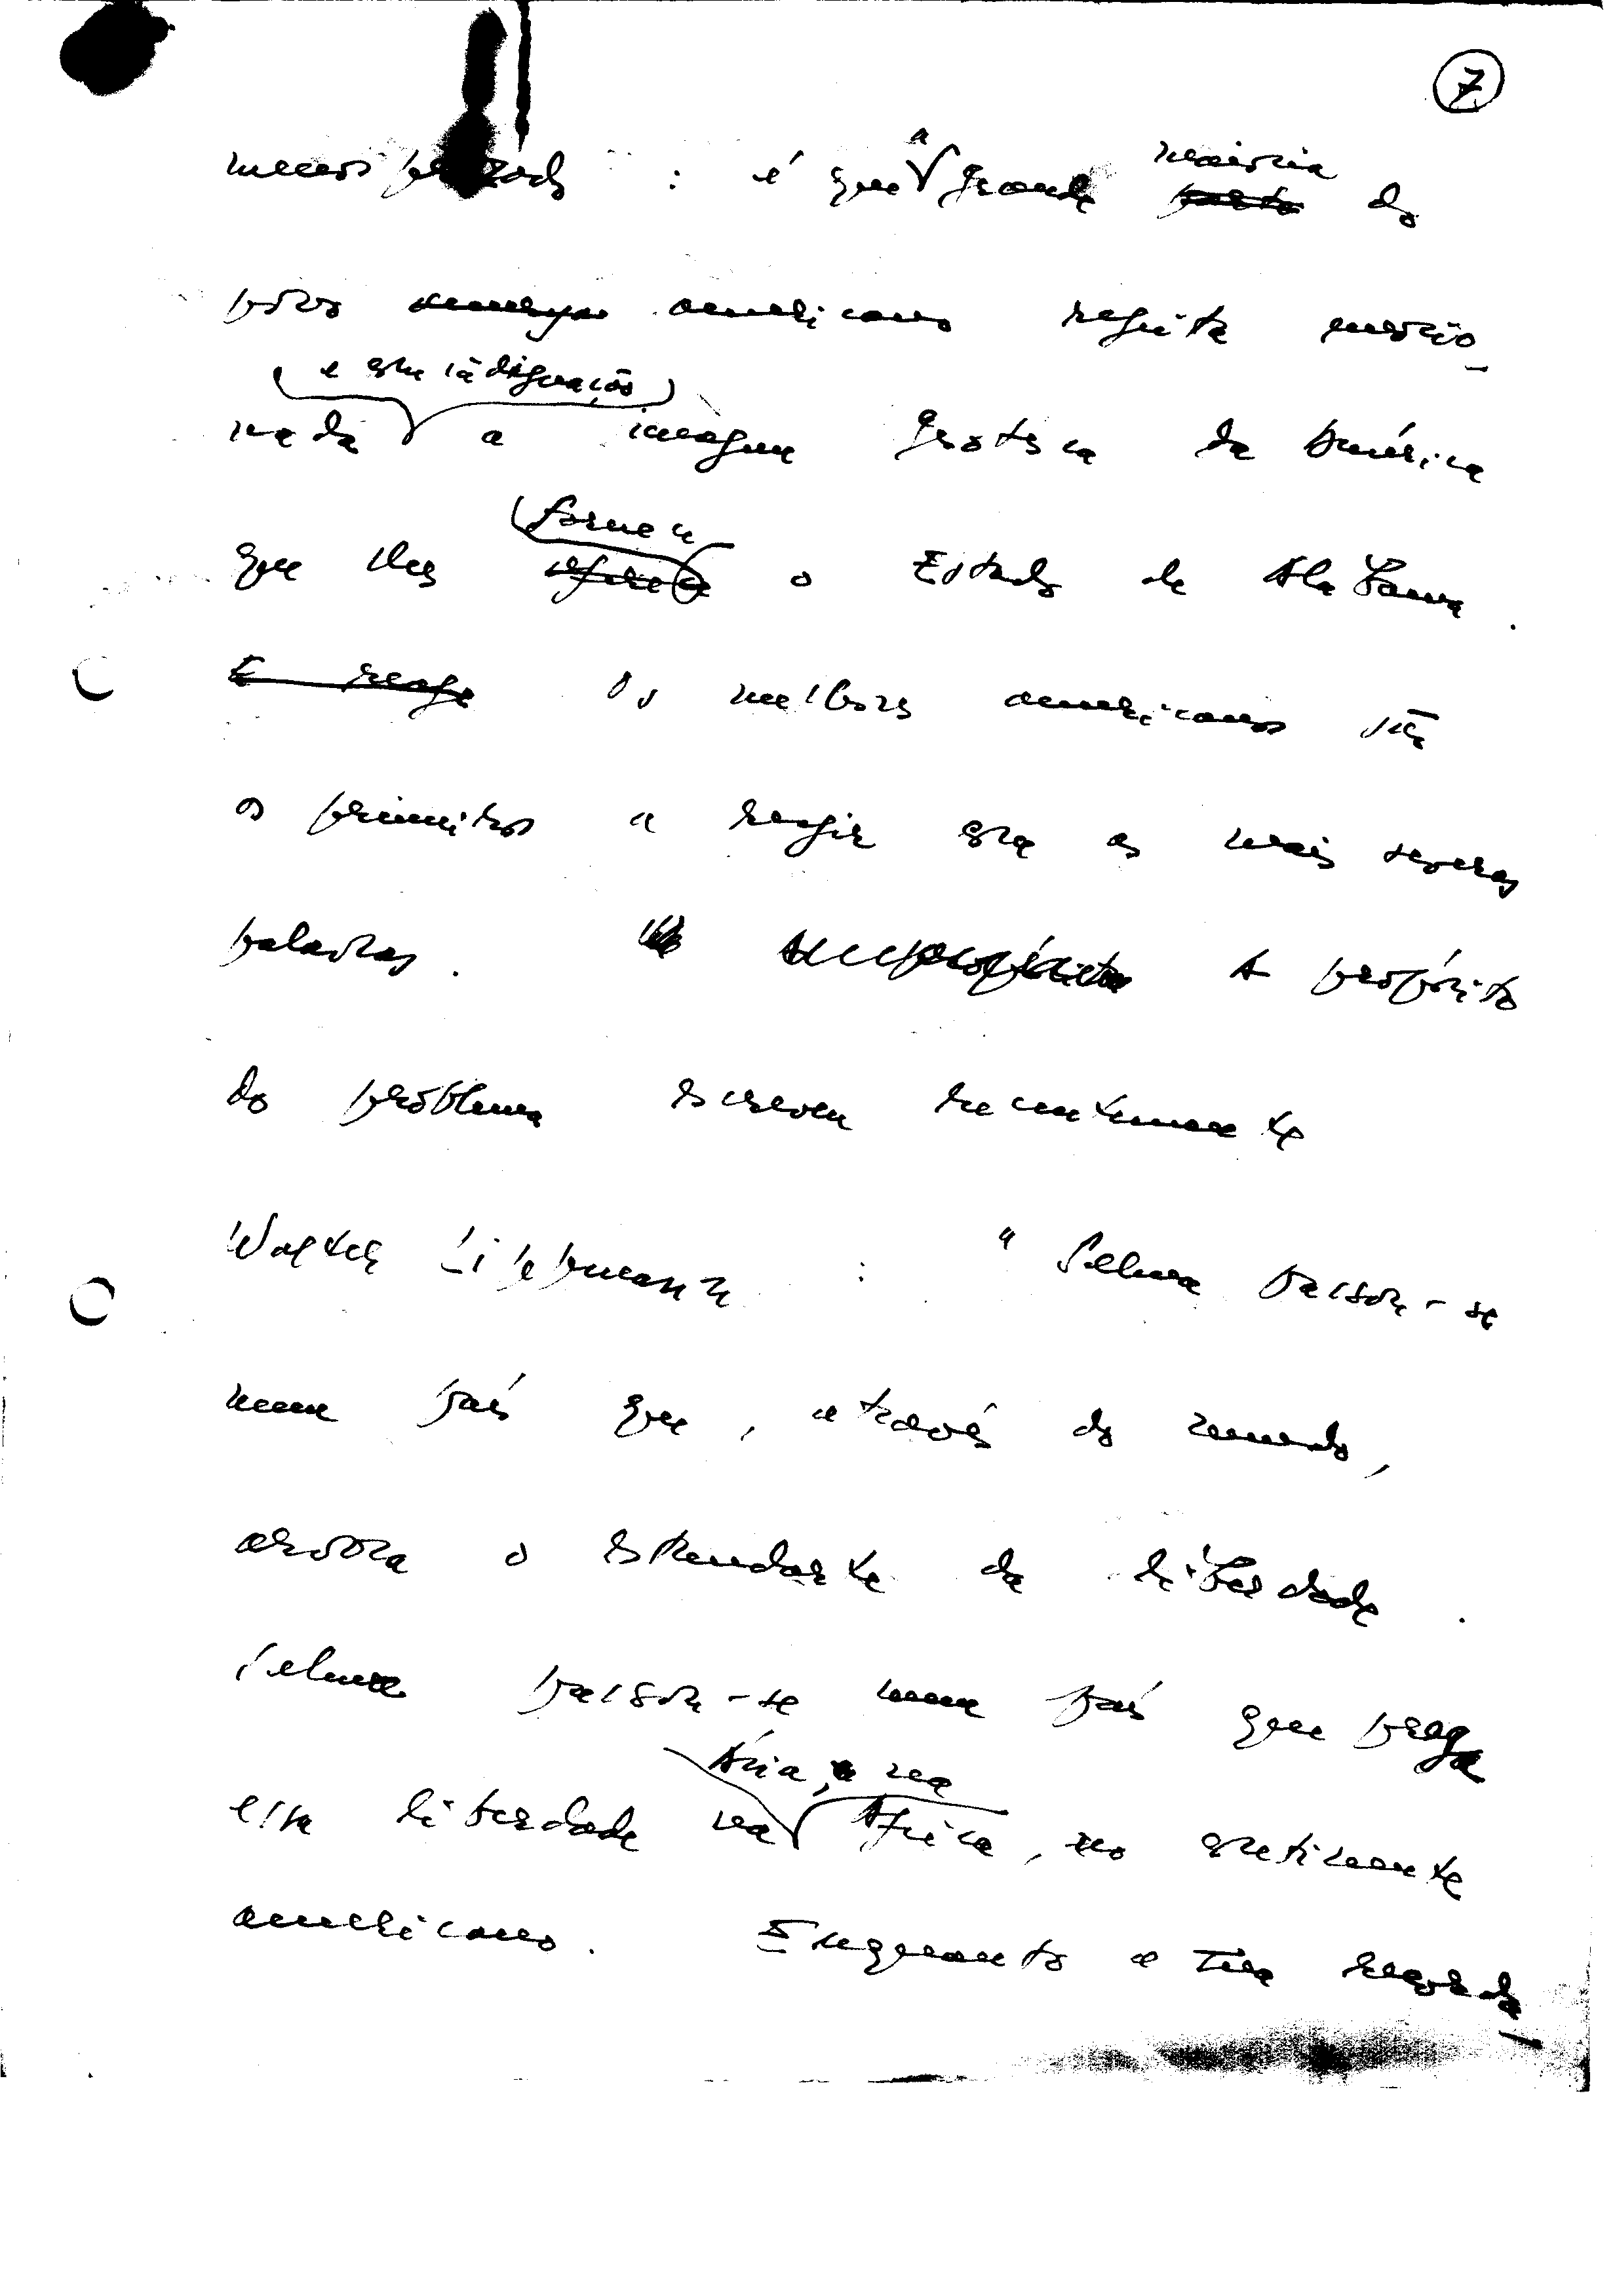 7
menosprezado : é que a grande maioria do
povo americano rejeita enojo-
nada e com indignação a imagem grotesca da América
que lhes fornece o Estado de Alabama.
E reage Os melhores americanos são
os primeiros a reagir com as mais severas
palavras. A propósito
do problema escreveu recentemente
Walter Lippmann : "Selma passou-se
num país que, através do mundo,
arvora o estandarte da liberdade.
Selma passou-se num país que prega
essa liberdade na Ásia, na África, no continente
americano. Enquanto a